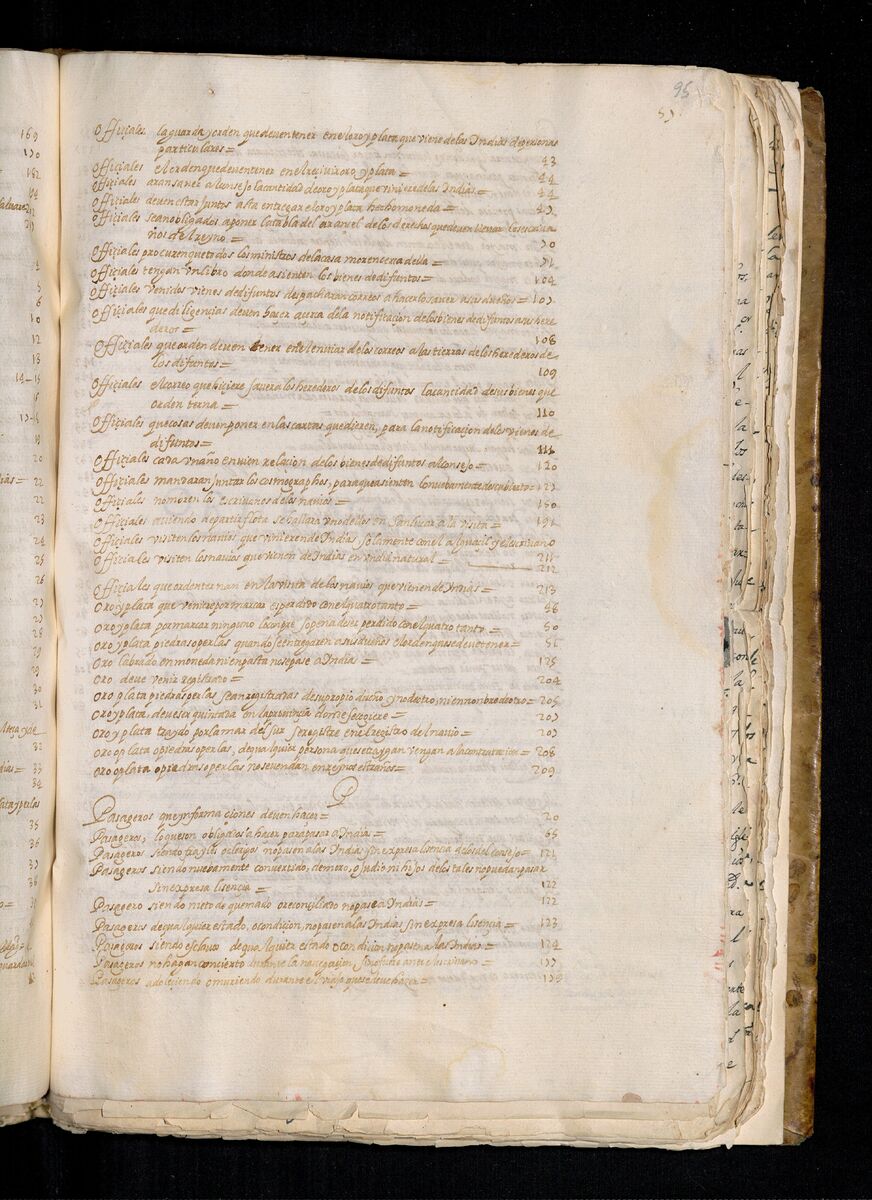 95
51
Officiales la guarda y orden que deven tener en el oro y plata que viene de las Indias de personas
particulares = 43
Officiales el orden que deven tener en el reçivir oro y plata = 44
Officiales a consejo la cantidad de oro y plata que viniere de las Indias = 44
Officiales deven estar juntos asta entregar el oro y plata hecho moneda = 49
Officiales sean obligados a poner la tabla del aranzel de los derechos que deven llevar los escriva
nos del reyno = 70
Officiales procuren que todos los ministros de la casa moren cerca della = 71
Officiales tengan un libro donde asienten los bienes de difuntos = 104
Officiales venidos vienes de difuntos despacharan correos a hacerlo saver a sus dueños = 107
Officiales que diligencias deven haçer açerca de la notificacion de los bienes de difuntos a sus here
deros = 108
Officiales que orden deven tener en el enviar de los correos a las tierras de los herederos de
los difuntos = 109
Officiales el correo que hiçiere saver a los herederos de los difuntos la cantidad de sus bienes que
orden terna = 110
Officiales que cosas deven poner en las cartas que dieren, para la notificacion de los vienes de
difuntos = 111
Officiales cada un año envien relacion de los bienes de difuntos al consejo = 120
Officiales mandaran juntar los cosmographos, para que asienten lo nuebamente descubierto = 127
Officiales nombren los escrivanos de los navios = 160
Officiales aviendo de partir flota se hallara uno dellos en Sanlucar a la visita = 191
Officiales visiten los navios que vinieren de Indias, solamente con el alguazil y el escrivano 211
Officiales visiten los navios que vienen de Indias en un dia natural = 212
Officiales que orden ternan en la visita de los navios que vienen de Indias = 213
Oro y plata que viniere por marcar es perdido con el quatro tanto = 46
Oro y plata por marcar ninguno lo conpre so pena de ser perdido con el quatro tanto = 50
Oro y plata piedras o perlas quando se entregaren a sus dueños el orden que se deve tener = 51
Oro labrado en moneda ni en pasta no se pase a Indias = 125
Oro deve venir registrado = 204
Oro plata piedras perlas sean registradas de su propio dueño y no de otro, ni en nonbre de otro = 205
Oro y plata, deve ser quintada en la provincia donde se cogiere = 207
Oro y plata traydo por la mar del sur se registre en el registro del navio = 207
Oro o plata o piedras o perlas, de qualquier persona que se traygan vengan a la contratacion = 208
Oro o plata o piedras o perlas no se vendan en reinos estraños = 209
P
Pasageros que informaçiones deven hacer = 20
Pasageros, lo que son obligados a haçer para pasar a Indias = 65
Pasagero siendo frayles o clerigos no pasen a las Indias sin expresa lisencia de los del consejo = 121
Pasageros siendo nuebamente convertido, de moro, o judio ni hijos de los tales no puedan pasar
sin expresa lisencia = 122
Pasagero siendo nieto de quemado o reconçiliado no pase a Indias = 122
Pasageros de qualquier estado, o condicion, no pasen a las Indias sin expresa lisencia = 123
Pasageros siendo esclavo de qualquier estado o condicion no pasen a las Indias = 124
Pasageros no hagan concierto durante la navegacion, si no fuere ante el escrivano = 177
Pasageros adoleciendo o muriendo durante el viaje que se deve hacer = 179